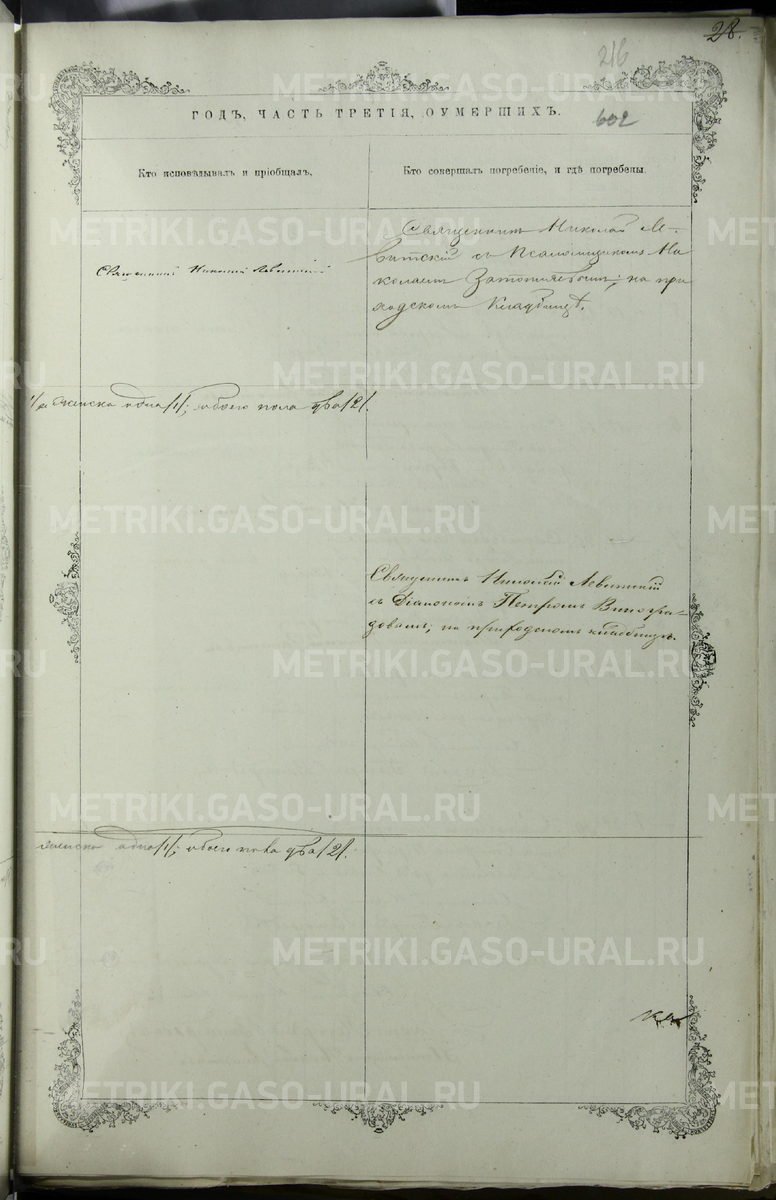 28.
216
ГОДЪ, ЧАСТЬ ТРЕТІЯ, ОУМЕРШИХЪ.
602
Кто исповѣдывалъ и пріобщалъ.
Кто совершалъ погребеніе, и гдѣ погребены.
Священникъ Николай Левитскій
Священникъ Николай Ле-
витскій съ Псаломщикомъ Ни
колаемъ на при
ходскомъ Кладбищѣ.
женска одна /1/; обоего пола два /2/.
Священникъ Николай Левитскій
съ Діакономъ Петромъ Виногра-
довымъ, на приходскомъ кладбищѣ.
женска одна /1/; обоего пола два /2/.
METRIKI.GASO-URAL.RU